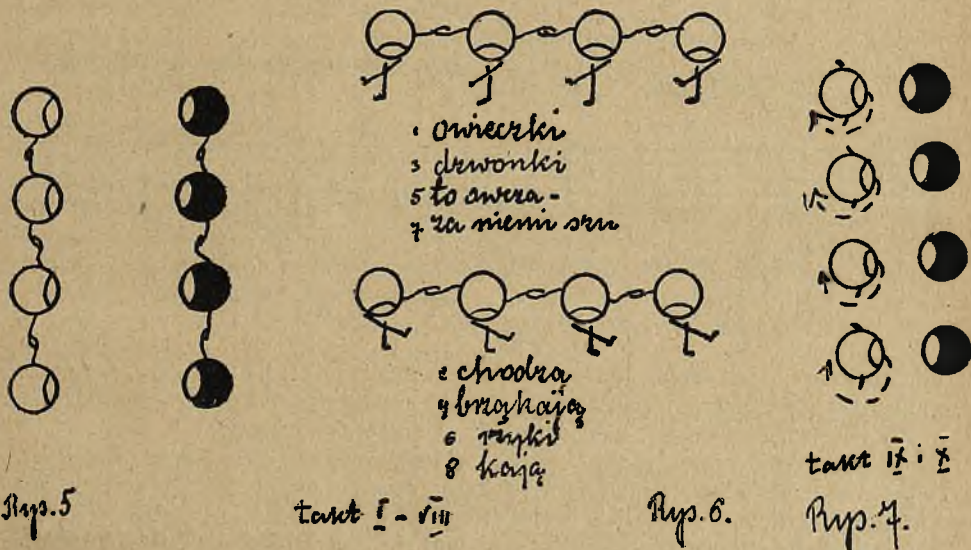 1 owieczki
3 dzwonki
5 to owcza -
7 za niemi szu
2 chodzą
4 brząkają
6 rzyki
8 kają
Rys. 5
takt I - VIII
Rys. 6.
takt IX i X
Rys. 7.